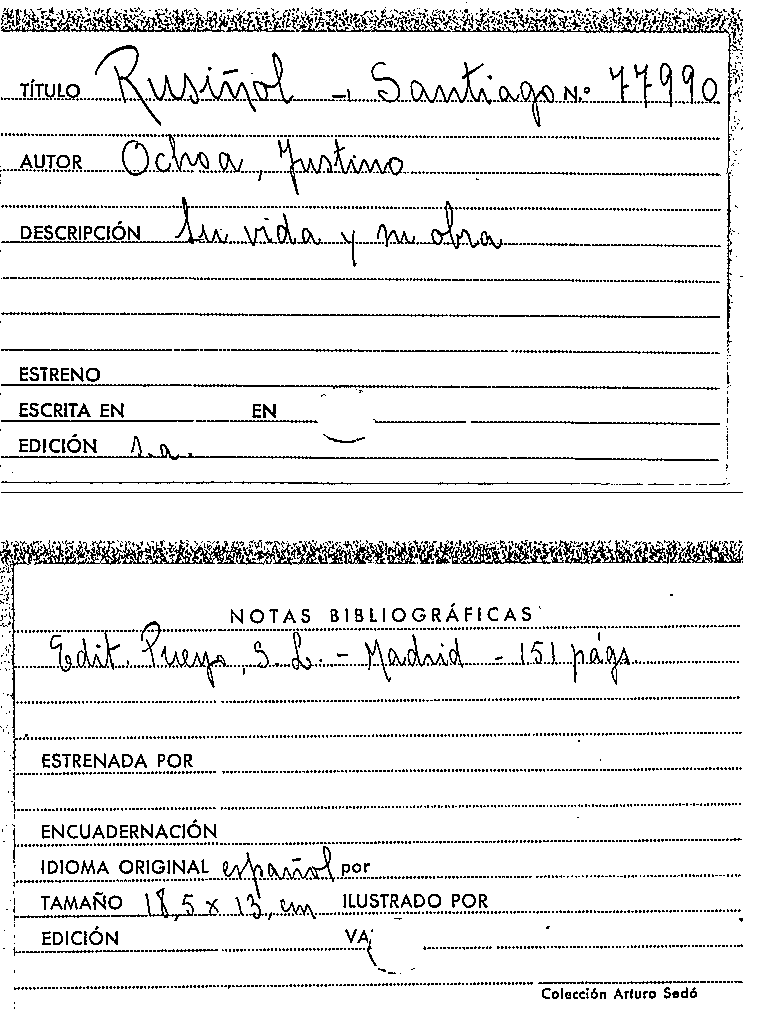 TÍTULO Rusiñol - Santiago N.º 77990
AUTOR Ochoa, Justino
DESCRIPCIÓN Su vida y su obra
ESTRENO
ESCRITA EN EN
EDICIÓN s.a.
NOTAS BIBLIOGRÁFICAS
Edit. Pueyo, S. L. - Madrid - 151 págs.
ESTRENADA POR
ENCUADERNACIÓN
IDIOMA ORIGINAL español por
TAMAÑO 18,5 x 13, cm ILUSTRADO POR
EDICIÓN VA
Colección Arturo Sedó